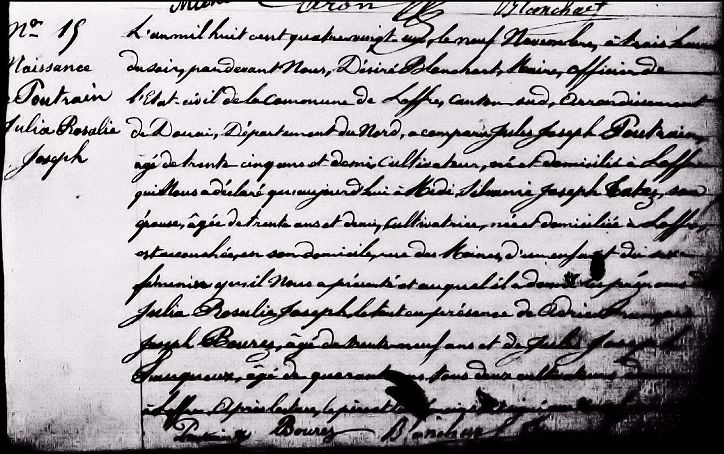 Caron Blanchart
Nº 15
Naissance
Poutrain
Julia Rosalie
Joseph
L'an mil huit cent quatre vingt un, le neuf Novembre, à trois heures
du soir, pardevant Nous, Désiré Blanchart, Maire, officier de
l'Etat-civil de la Commune de Loffre, canton sud, Arrondissement
de Douai, Département du Nord, a comparu Jules Joseph Poutrain,
âgé de trente cinq ans et demi, Cultivateur, né et domicilié à Loffre
qui Nous a déclaré qu'aujourd'hui à Midi, Silvanie Joseph son
épouse, âgée de trente ans et demi, Cultivatrice, née et domiciliée à Loffre,
est accouchée, en son domicile, rue des Moines, d'un enfant du sexe
féminin qu'il Nous a présenté et auquel il a donné les prénoms de
Julia Rosalie Joseph, le tout en présence de Adrien François
Joseph Bourez, âgé de trente neuf ans et de Jules Joseph
âgé de quarante ans, tous deux cultivateurs
à Loffre. Et après lecture, le père et
Poutrain Bourez Blanchart